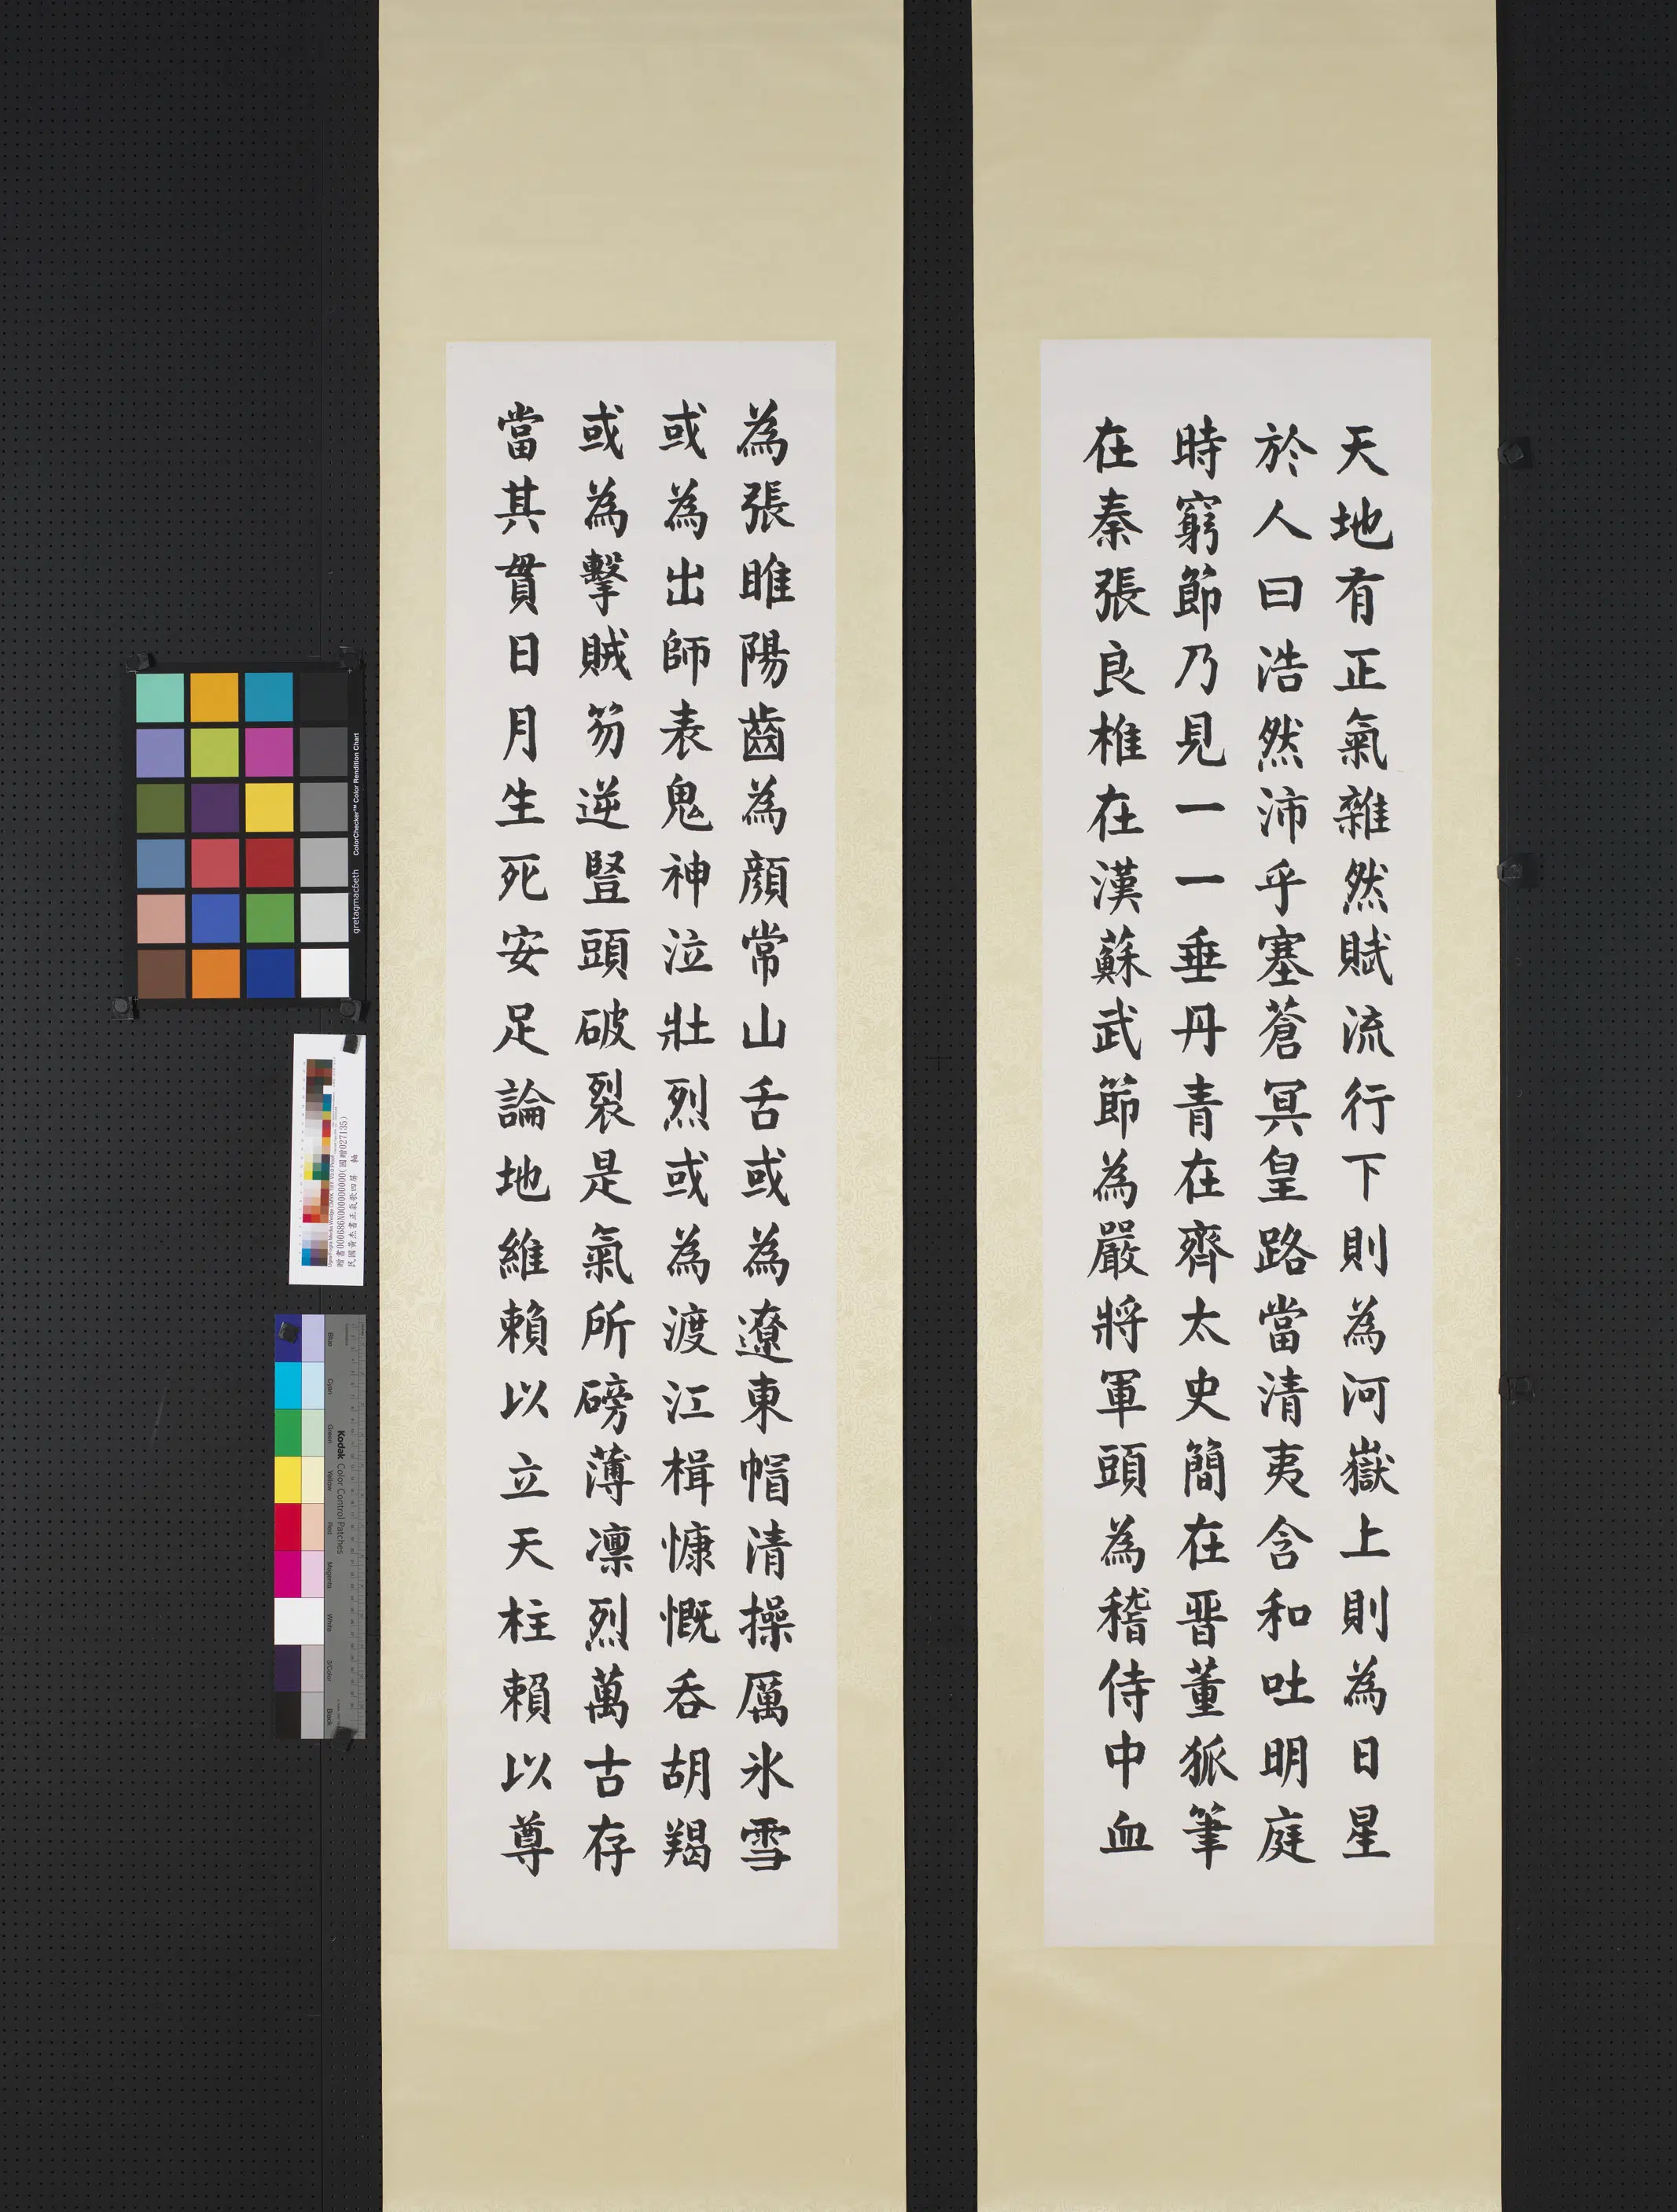 天地有正氣雜然賦流行下則為河嶽上則為日星
於人曰浩然沛乎塞蒼冥皇路當清夷含和吐明庭
時窮節乃見一一垂丹青在齊太史簡在晉董狐筆
在秦張良椎在漢蘇武節為嚴將軍頭為嵇侍中血
為張睢陽齒為顏常山舌或為遼東帽清操厲氷雪
或為出師表鬼神泣壯烈或為渡江楫慷慨吞胡羯
或為擊賊笏逆豎頭破裂是氣所磅薄凜烈萬古存
當其貫日月生死安足論地維賴以立天柱賴以尊
ColorChecker™ Color Rendition Chart
gretagmacbeth
贈書000686N000000000(國贈027135)
民國黃杰書正氣歌四屏 軸
Kodak Color Control Patches
Blue
Cyan
Green
Yellow
Red
Magenta
White
3/Color
Black